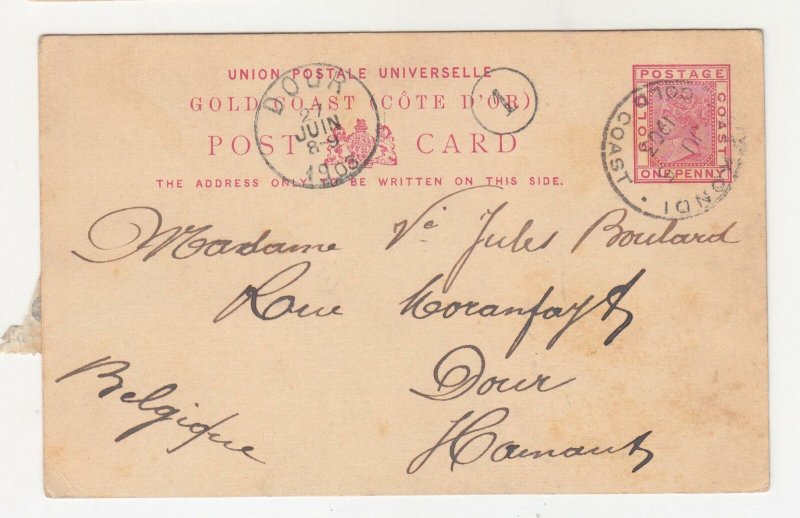 UNION POSTALE UNIVERSELLE
GOLD COAST (CÔTE D'OR)
POST CARD
THE ADDRESS ONLY TO BE WRITTEN ON THIS SIDE.
DOUR
27
JUIN
8-9
1903
1
POSTAGE
GOLD COAST
ONE PENNY
GOLD COAST
Madame Ve Jules Boulard
Rue Moranfayt
Dour
Hainaut
Belgique